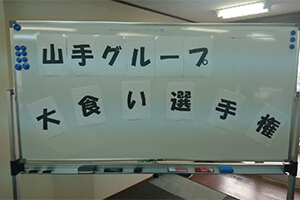 山手グループ
大食い選手権